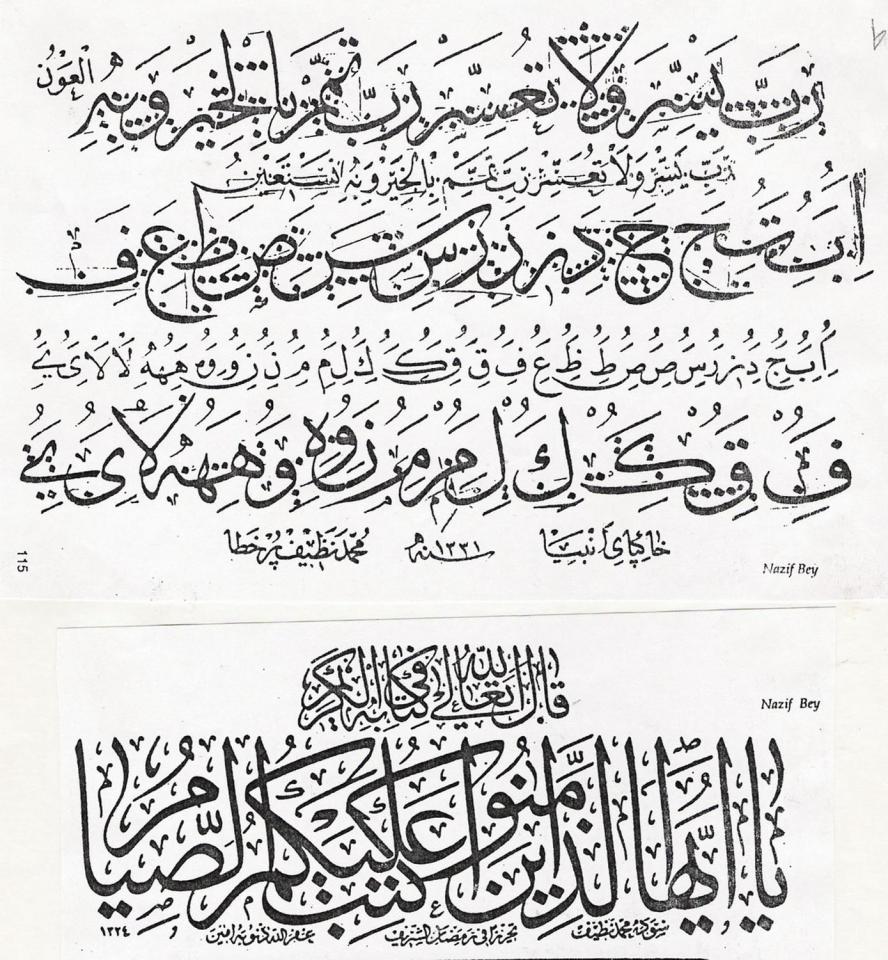 رَبِّ يَسِّرْ وَلَا تُعَسِّرْ رَبِّ تَمِّمْ بِالْخَيْرِ وَبِهِ الْعَوْنُ
رَبِّ يَسِّرْ وَلَا تُعَسِّرْ رَبِّ تَمِّمْ بِالْخَيْرِ وَبِهِ نَسْتَعِينُ
ا ب ت ج چ د ز ر ز س ش ص ط ع ف
ا ب ج د ز ر س ص ص ط ظ ع ف ق ق ك ك ل م م ن ن و وه ههه لا لا ى ي
ف ق ك ك ل ل م م ن وه و ههه لا ى ي
خاكپاي انبيا سنه ١٣٣١ محمد نظيف پر خطا
Nazif Bey
115
قال الله تعالى في كتابه الكريم
Nazif Bey
يا ايها الذين امنوا كتب عليكم الصيام
سوده محمد نظيف تحريرا في رمضان الشريف غفر الله ذنوبه امين ١٣٢٤